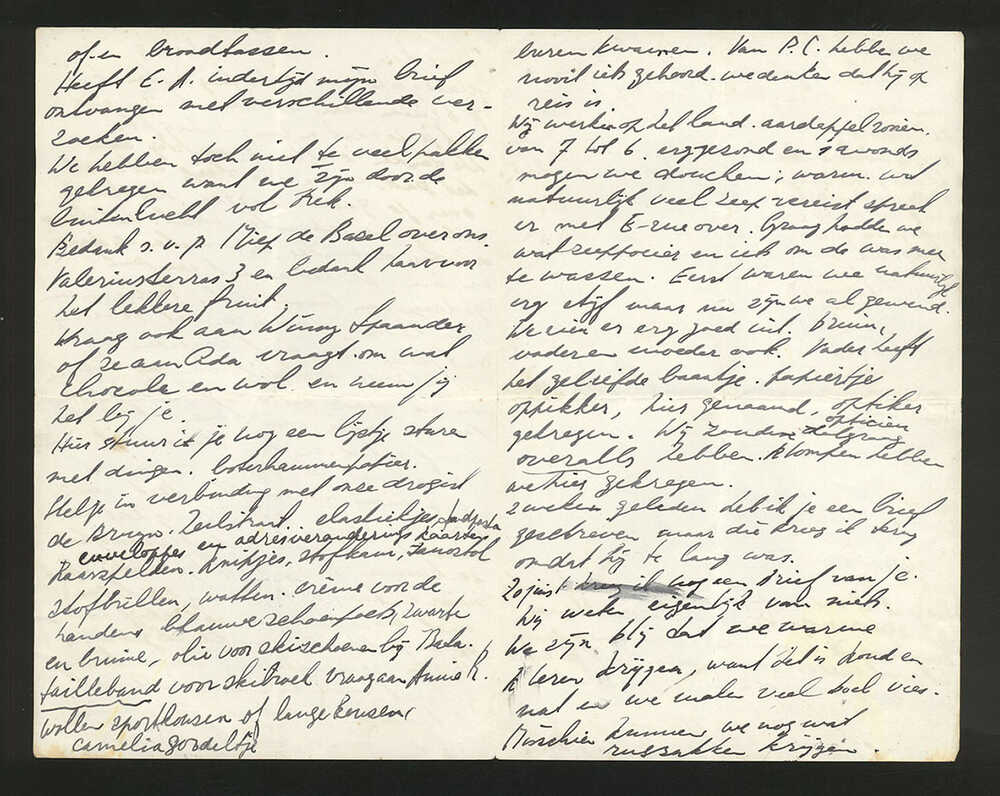 of en broodtassen.
Heeft E. A. indertijd mijn brief
ontvangen met verschillende ver-
zoeken.
We hebben toch niet te veel pakken
gekregen want we zijn door de
buitenlucht vol trek.
Bedank s.v.p. Miep de Basel over ons.
Valeriusterras 3 en bedank haar voor
het lekkere fruit.
Vraag ook aan Winny Spaander
of ze aan Ada vraagt om wat
chocola en wol. en neem jij
het bij je.
Hier stuur ik je nog een lijstje
met dingen. boterhammenpapier.
Stel je in verbinding met onze drogist
de Bruyn. Zeilstraat. elastiekjes, tandpasta
enveloppes en adresveranderings kaarten
Haarspelden. Knipjes, stofkam, Sanostol
stofbrillen, watten. crème voor de
handen blauwe schoenpoets, zwarte
en bruine, olie voor skischoenen bij Bata.
tailleband voor skibroek vraag aan Annie R.
wollen sportkousen of lange kousen,
camelia gordeltje
buren kwamen. Van P.C. hebben we
nooit iets gehoord. we denken dat hij op
reis is.
Wij werken op het land. aardappelrooien.
van 7 tot 6. erg gezond en 's avonds
mogen we douchen; warm. wat
natuurlijk veel zeep vereist spreek
er met E-rue over. Graag hadden we
wat zeeppoeier en iets om de was mee
te wassen. Eerst waren we natuurlijk
erg stijf maar nu zijn we al gewend.
We zien er erg goed uit. bruin,
vader en moeder ook. Vader heeft
het geliefde baantje. papiertje
oppikker, hier genaamd, optiker
opticien
gekregen. Wij zouden dolgraag
overalls hebben. Klompen hebben
we hier gekregen.
2 weken geleden heb ik je een brief
geschreven maar die kreeg ik terug
omdat hij te lang was.
Zojuist kreeg ik nog een brief van je.
Wij weten eigenlijk van niets.
We zijn blij dat we warme
kleren krijgen, want het is koud en
nat en we maken veel boel vies.
Misschien kunnen we nog wat
rugzakken krijgen.